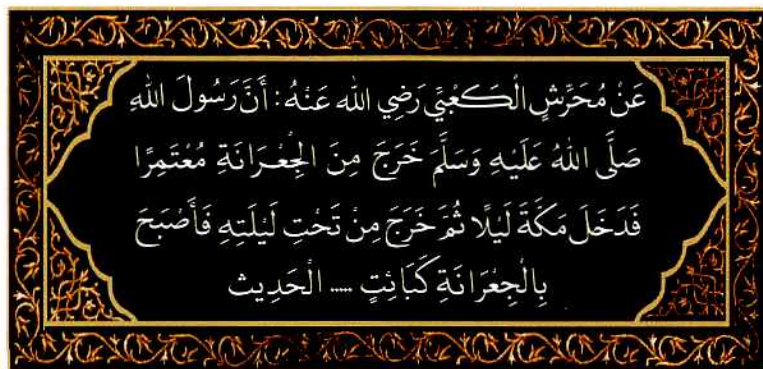 عَنْ مُحَرِّشٍ الْكَعْبِيِّ رَضِيَ اللهُ عَنْهُ: أَنَّ رَسُولَ اللهِ
صَلَّى اللهُ عَلَيْهِ وَسَلَّمَ خَرَجَ مِنَ الْجِعْرَانَةِ مُعْتَمِرًا
فَدَخَلَ مَكَّةَ لَيْلًا ثُمَّ خَرَجَ مِنْ تَحْتِ لَيْلَتِهِ فَأَصْبَحَ
بِالْجِعْرَانَةِ كَبَائِتٍ ..... الْحَدِيث